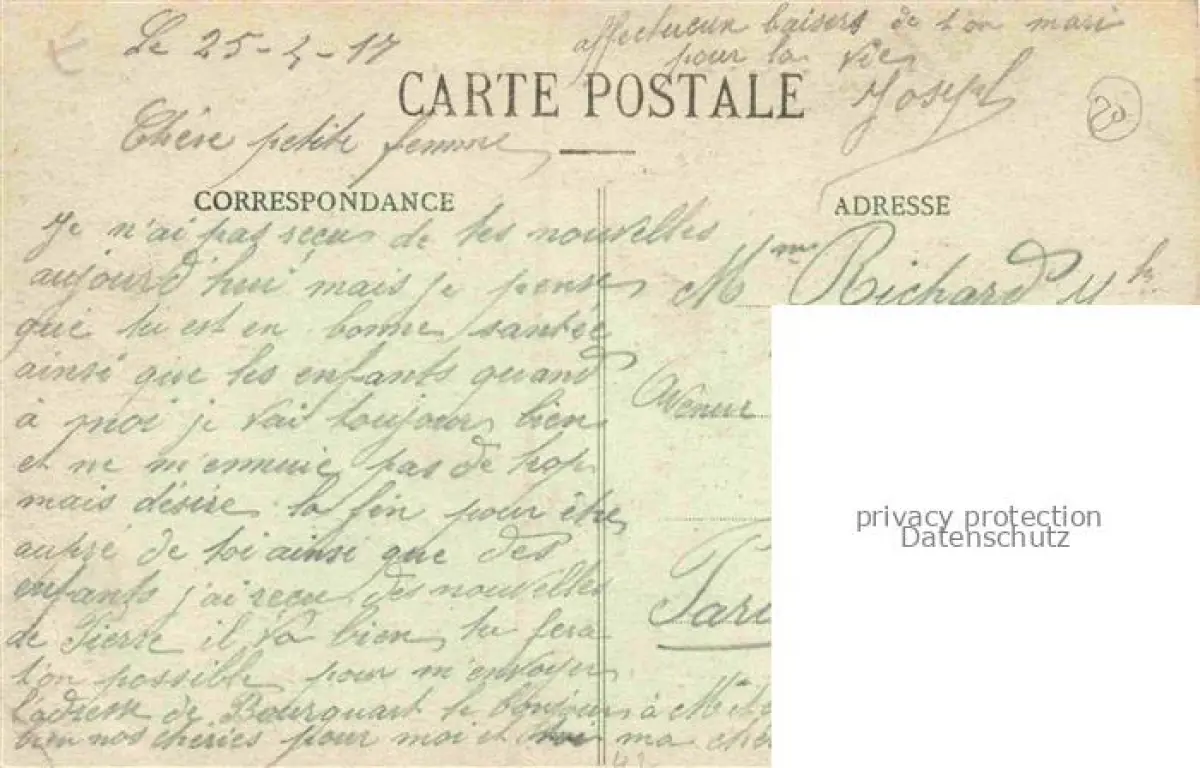 Le 25-4-17
affectueux baisers de ton mari
pour la vie
Joseph
CARTE POSTALE
20
Chère petite femme
CORRESPONDANCE
Je n'ai pas reçu de tes nouvelles
aujourd'hui mais je pense
que tu est en bonne santée
ainsi que les enfants quand
à moi je vai toujours bien
et ne m'ennuie pas de trop
mais désire la fin pour être
aupré de toi ainsi que des
enfants j'ai reçu des nouvelles
de Pierre il va bien tu fera
ton possible pour m'envoyer
l'adresse de Bourquart le bonjour à
bien nos chéries pour moi et toi ma
ADRESSE
Mme Richard
Avenue
privacy protection
Datenschutz